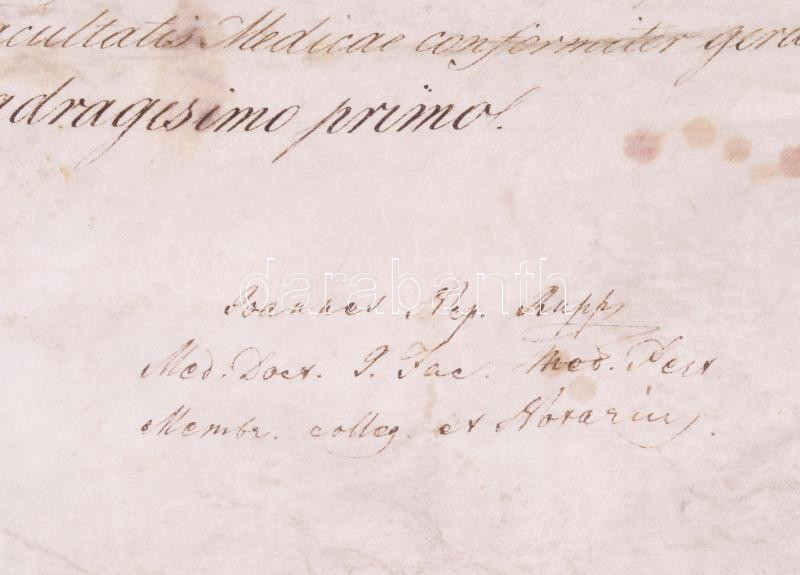 acultatis Medicae conformiter gera
adragesimo primo.
darabanth
Joannes Nep. Rupp
Med. Doct. I. Fac. Med. Pest
Membr. colleg. et Notarius.